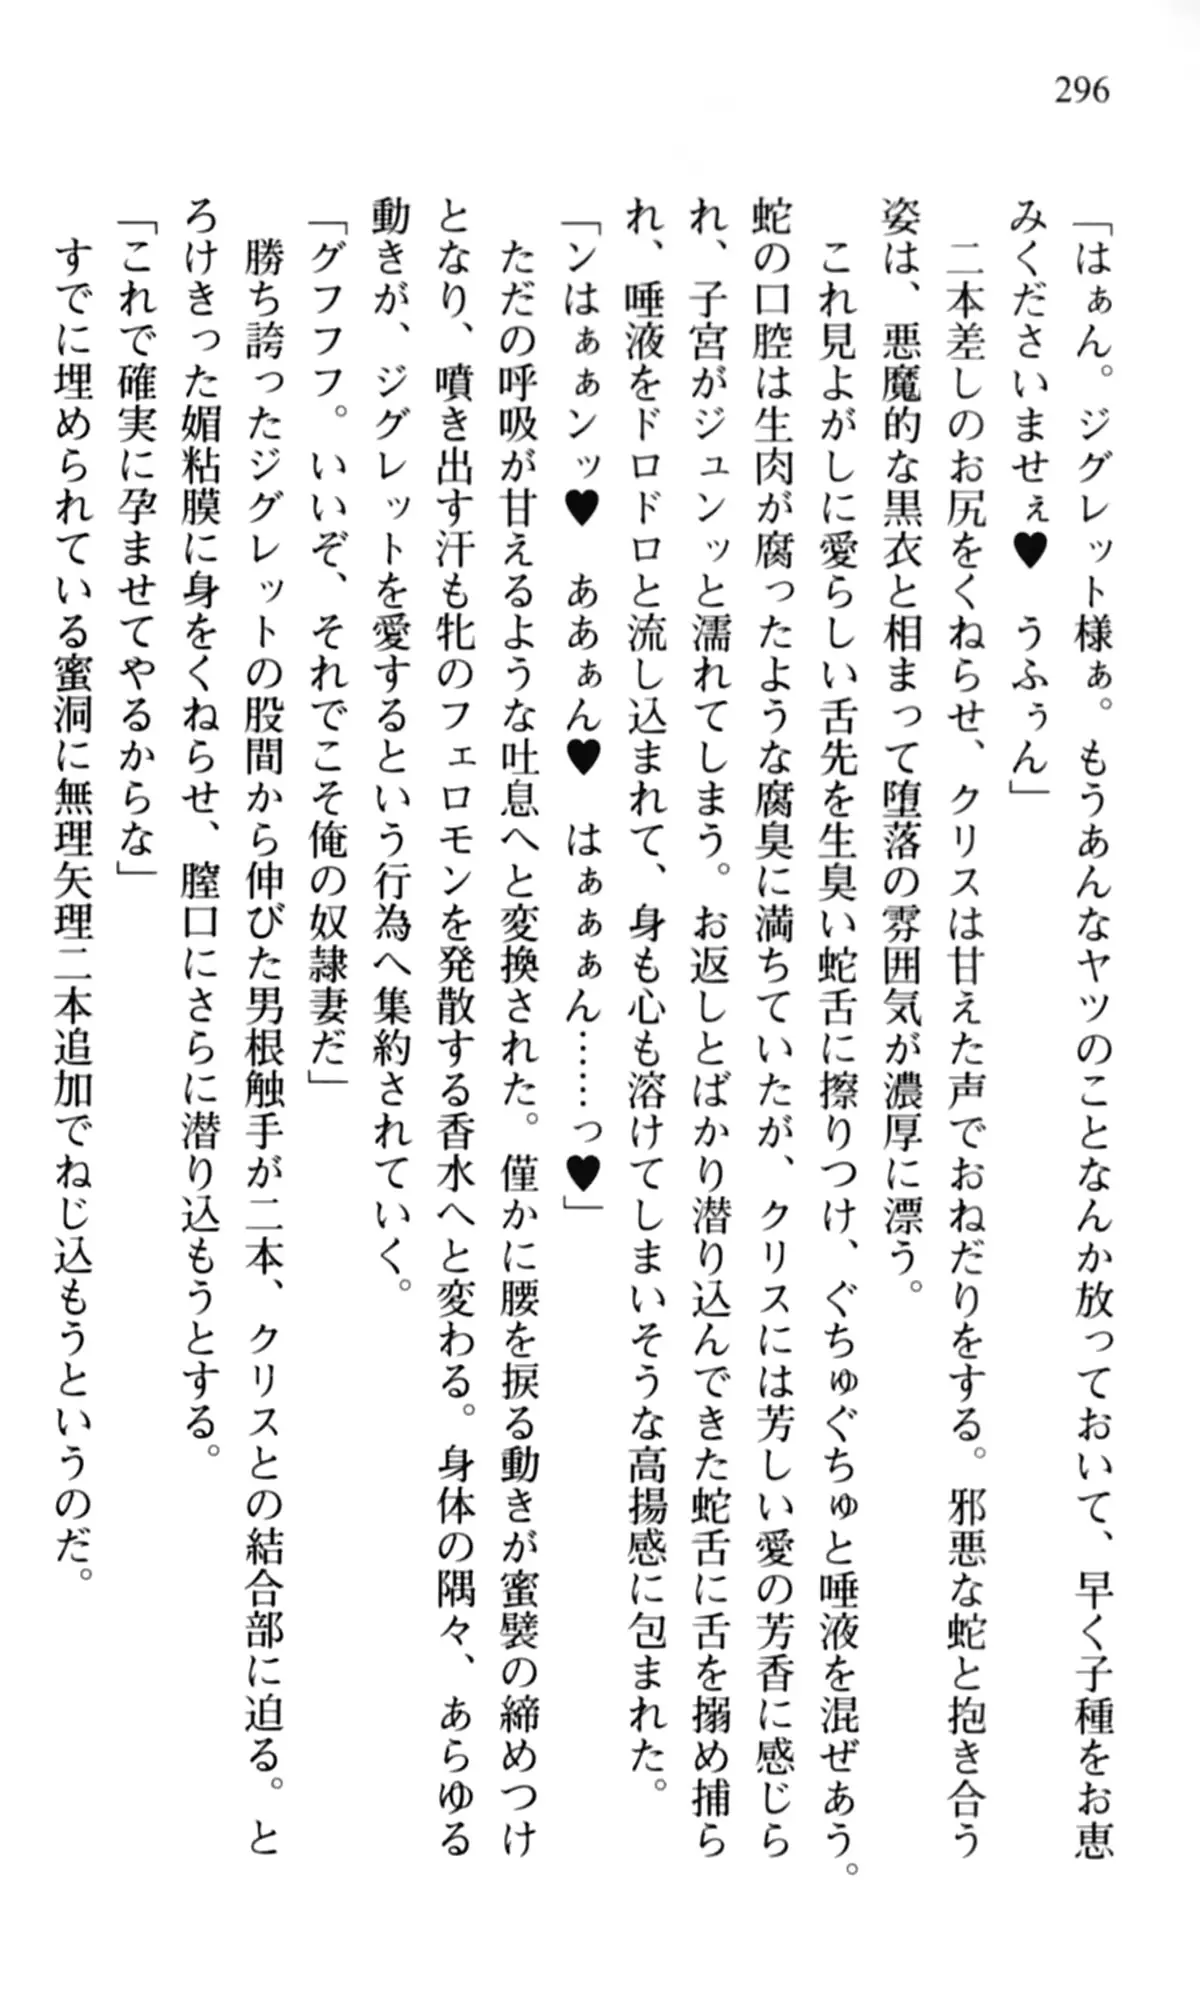 296
「はぁん。ジグレット様ぁ。もうあんなヤツのことなんか放っておいて、早く子種をお恵
みくださいませぇ♥　うふぅん」
　二本差しのお尻をくねらせ、クリスは甘えた声でおねだりをする。邪悪な蛇と抱き合う
姿は、悪魔的な黒衣と相まって堕落の雰囲気が濃厚に漂う。
　これ見よがしに愛らしい舌先を生臭い蛇舌に擦りつけ、ぐちゅぐちゅと唾液を混ぜあう。
蛇の口腔は生肉が腐ったような腐臭に満ちていたが、クリスには芳しい愛の芳香に感じら
れ、子宮がジュンッと濡れてしまう。お返しとばかり潜り込んできた蛇舌に舌を搦め捕ら
れ、唾液をドロドロと流し込まれて、身も心も溶けてしまいそうな高揚感に包まれた。
「ンはぁぁンッ♥　ああぁん♥　はぁぁぁん……っ♥」
　ただの呼吸が甘えるような吐息へと変換された。僅かに腰を捩る動きが蜜襞の締めつけ
となり、噴き出す汗も牝のフェロモンを発散する香水へと変わる。身体の隅々、あらゆる
動きが、ジグレットを愛するという行為へ集約されていく。
「グフフフ。いいぞ、それでこそ俺の奴隷妻だ」
　勝ち誇ったジグレットの股間から伸びた男根触手が二本、クリスとの結合部に迫る。と
ろけきった媚粘膜に身をくねらせ、膣口にさらに潜り込もうとする。
「これで確実に孕ませてやるからな」
　すでに埋められている蜜洞に無理矢理二本追加でねじ込もうというのだ。